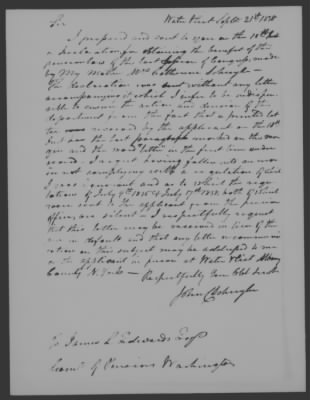 Water Vliet Septr 21st 1838
Sir
I prepared and sent to you on the 10th Inst
a declaration for obtaining the benefit of the
pension law of the last session of Congress, made
by My Mother Mrs Catharine
The declaration was sent without any letter
accompanying it which I infer is indispen-
sable to ensure the action and decision of the
department from the fact that a printed let
ter received by the applicant on the 18th
Inst has the last paragraph marked on the mar
gin and the word letter in the first line under
scored. I regret having fallen into an error
in not complying with a regulation of which
I was ignorant and as to which the regu
lations of July 9th 1836 & July 17th 1838 both of which
were sent to the applicant from the pension
office, are silent. I respectfully request
that this letter may be received in lieu of the
one in default and that any letter or communi
cation on this subject may be addressed to me
or the applicant in person at Water Vliet Albany
County N. York — Respectfully your Obt Servt
John
To James L Edwards Esqr
Comr of Pensions Washington